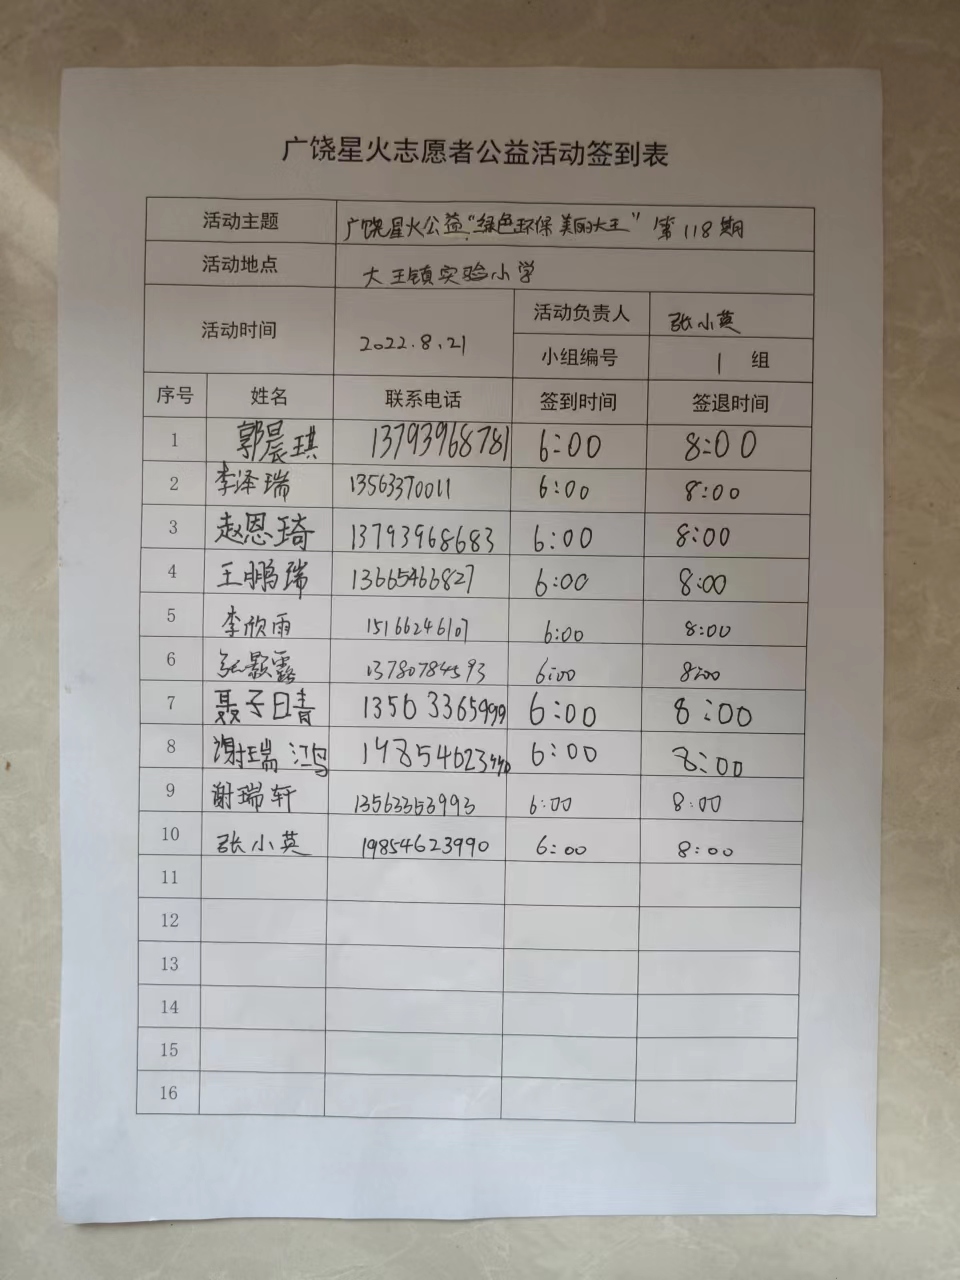 广饶星火志愿者公益活动签到表
活动主题 广饶星火公益“绿色环保 美丽大王” 第118期
活动地点 大王镇实验小学
活动时间 2022.8.21 活动负责人 张小英
小组编号 1 组
序号 姓名 联系电话 签到时间 签退时间
1 郭晨琪 13793968781 6:00 8:00
2 李泽瑞 13563370011 6:00 8:00
3 赵恩琦 13793968683 6:00 8:00
4 王鹏瑞 13665466827 6:00 8:00
5 李欣雨 15166246107 6:00 8:00
6 13780784593 6:00 8:00
7 聂子晴 13563365999 6:00 8:00
8 谢瑞鸿 6:00 8:00
9 谢瑞轩 13563353993 6:00 8:00
10 张小英 19854623990 6:00 8:00
11
12
13
14
15
16